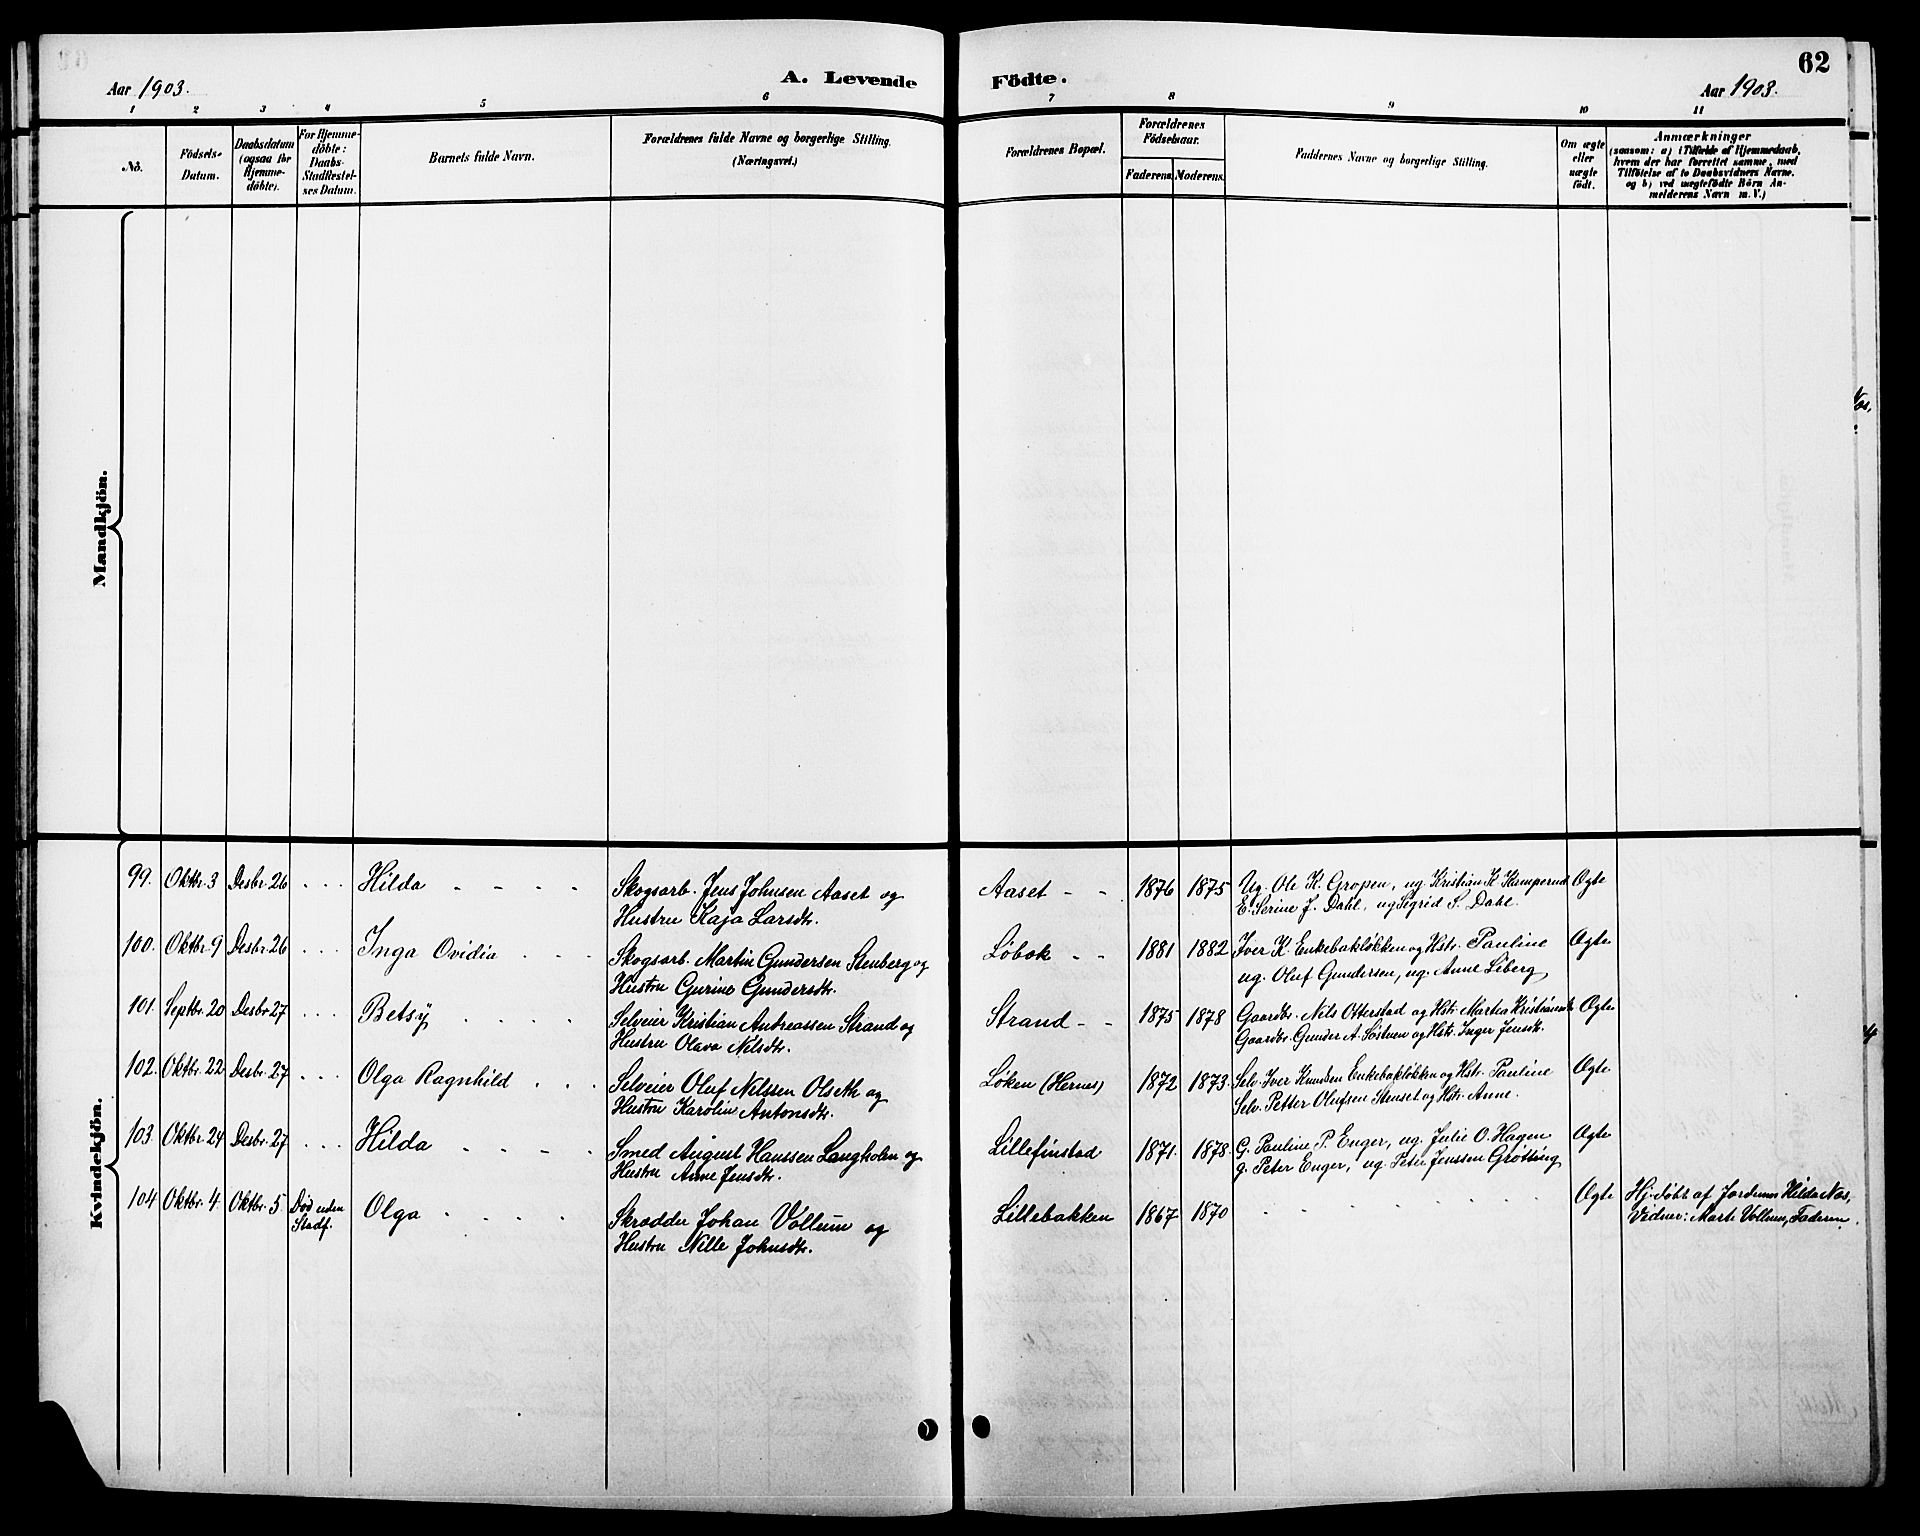 Aar 1903.
A. Levende
Födte.
62
Aar 1903.
1 2 3 4 5 6 7 8 9 10 11
No.
Födsels-
Datum.
Daabsdatum
(ogsaa for
Hjemme-
döbte).
For Hjemme-
döbte:
Daabs-
Stadfestel-
ses Datum.
Barnets fulde Navn.
Forældrenes fulde Navne og borgerlige Stilling.
(Næringsvei.)
Forældrenes Bopæl.
Forældrenes
Födselsaar.
Faderens. Moderens.
Faddernes Navne og borgerlige Stilling.
Om ægte
eller
uægte
födt.
Anmærkninger
(saasom: a) i Tilfælde af Hjemmedaab,
hvem der har forrettet samme, med
Tilföielse af to Daabsvidners Navne.
og b) ved uægtefödte Börn An-
melderens Navn m. V.)
Mandkjön.
Kvindekjön.
99. Oktbr. 3 Desbr. 26 Hilda
Skogsarb. Jens Johnsen Aaset og
Hustru Kaja Larsdtr.
Aaset 1876 1875
Ug. Ole K. Gropen, ug. Kristian K. Kamperud
E. Serine J. Dahl, ug Sigrid S. Dahl.
Ægte
100. Oktbr. 9 Desbr. 26 Inga Ovidia
Skogsarb. Martin Gundersen Stenberg og
Hustru Gurine Gundersdtr.
Løbak 1881 1882
Iver K. Enkebakløkken og Hstr. Pauline
ug. Oluf Gundersen, ug. Anne Liberg
Ægte
101. Septbr. 20 Desbr. 27 Betsy
Selveier Kristian Andreassen Strand og
Hustru Olava Nilsdtr.
Strand 1875 1878
Gaardbr. Nils Otterstad og Hstr. Martea Kristiansdtr.
Gaardbr. Gunder A. Søstuen og Hstr. Inger Jensdtr.
Ægte
102. Oktbr. 22 Desbr. 27 Olga Ragnhild
Selveier Oluf Nilssen Olseth og
Hustru Karolin Antonsdtr.
Løken (Hernes) 1872 1873
Selv. Iver Knudsen Enkebakløkken og Hstr. Pauline
Selv. Petter Olufsen Stenset og Hstr. Anne.
Ægte
103. Oktbr. 24 Desbr. 27 Hilda
Smed August Hanssen Langholen og
Hustru Anne Jensdtr.
Lillefinstad 1871. 1878.
G. Pauline P. Enger, ug. Julie O. Hagen
g. Peter Enger, ug. Peter Jenssen Grøtting
Ægte
104 Oktbr. 4. Oktbr. 5. Død uden
Stadf.
Olga
Skrædder Johan Vollum og
Hustru Nille Johnsdtr.
Lillebakken 1867 1870
Ægte
Hj. døbt af Jordemor Hilda Nos,
Vidner: Marte Vollum, Faderen.